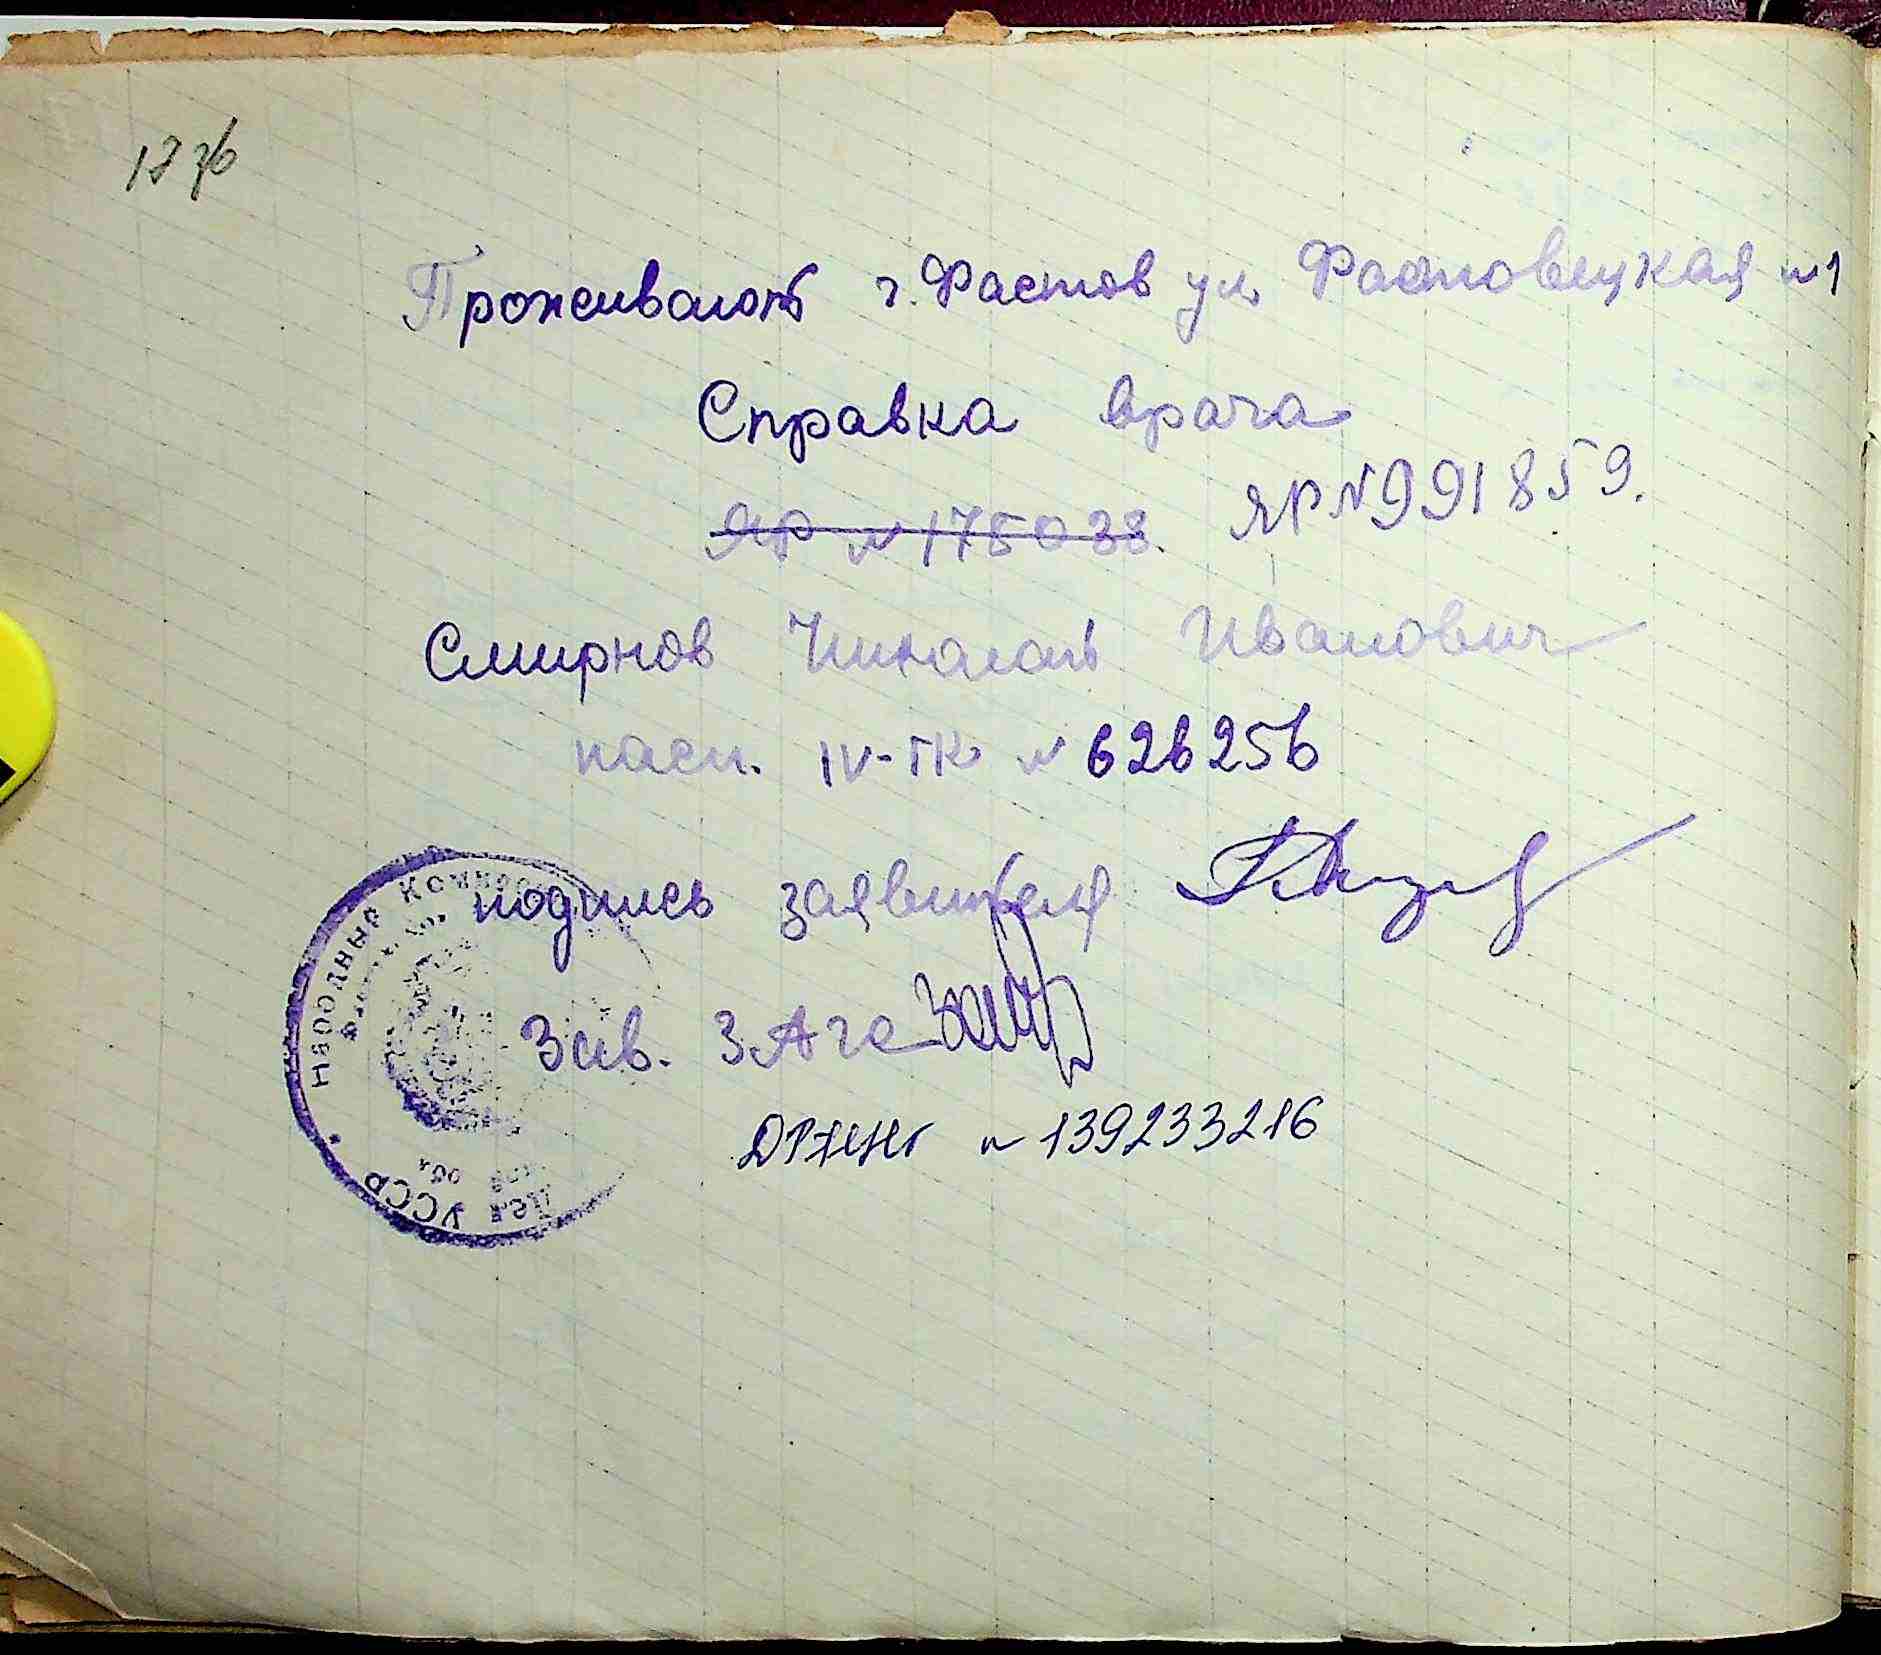 Проживают г. Фастов ул. Фастовецкая №1
Справка врача
ЯР №175038. ЯР№991859.
Смирнов Николай Иванович
пасп. IV-ГК № 626256
подпись заявителя
Зав. ЗАГС
№ 139233216
Народный Комисс
УССР